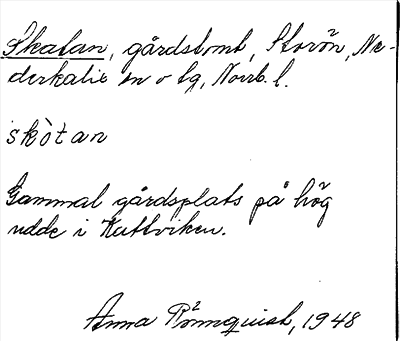 Skatan, gårdstomt, Storön, Ne-
derkalix sn o tg, Norrb. l.
skò̀tan
Gammal gårdsplats på hög
udde i Kuttviken.
Anna Rönnquist, 1948